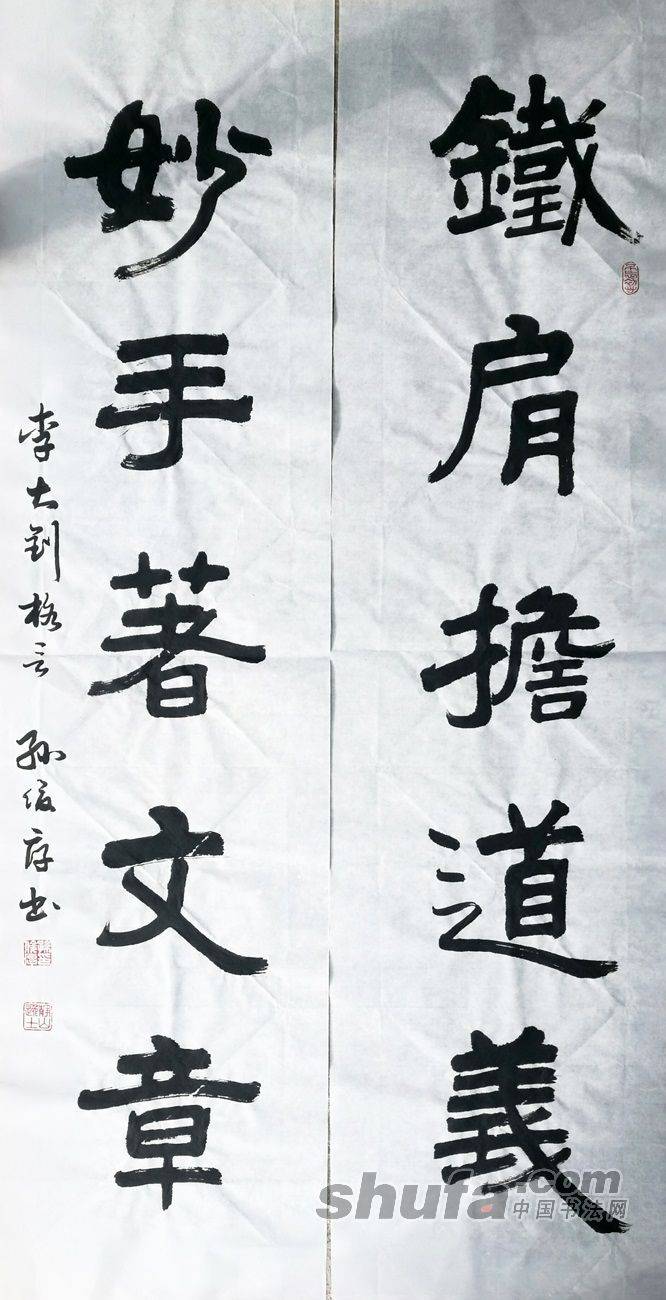 鐵肩擔道義
妙手著文章
李大釗格言 孫俊存书
shufa.com
中国书法网